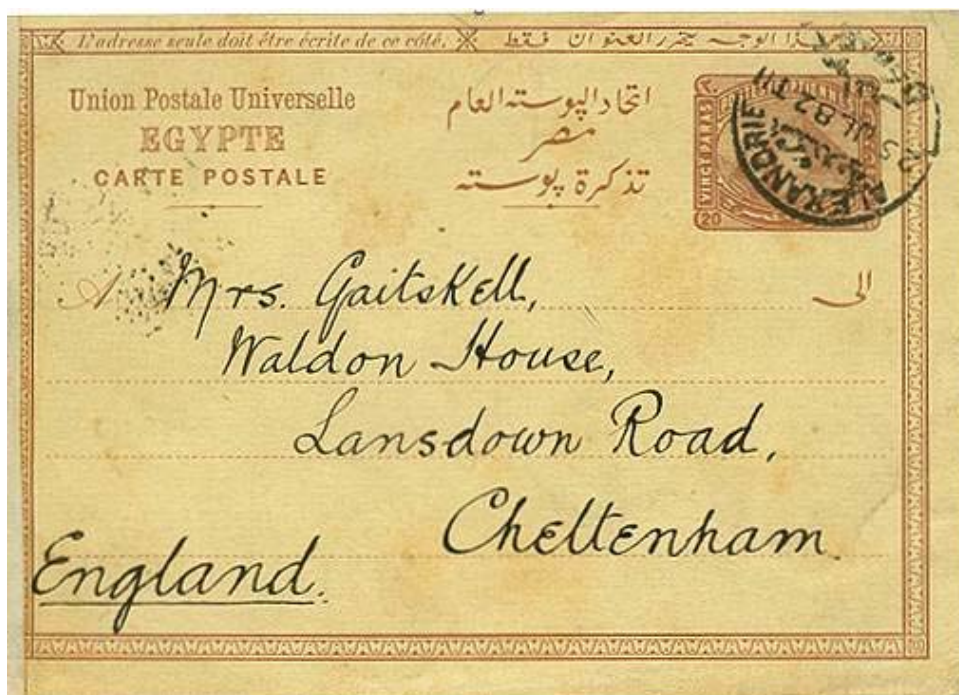 L'adresse seule doit être écrite de ce côté. هذا الوجه يحرر العنوان فقط
Union Postale Universelle
EGYPTE
CARTE POSTALE
اتحاد البوسته العام
مصر
تذكرة بوسته
VINGT PARAS
20
ALEXANDRIE
JL 82
A
الى
Mrs. Gaitskell,
Waldon House,
Lansdown Road,
Cheltenham
England.